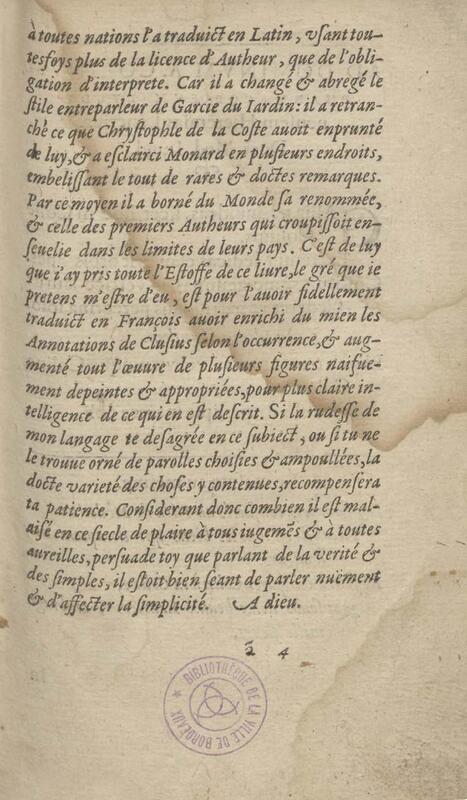 à toutes nations l'a traduict en Latin, vsant tou-
tesfoys plus de la licence d'Autheur, que de l'obli-
gation d'interprete. Car il a changé & abregé le
ſtile entreparleur de Garcie du Iardin: il a retran-
ché ce que Chryſtophle de la Coſte auoit enprunté
de luy, & a eſclairci Monard en pluſieurs endroits,
embeliſſant le tout de rares & doctes remarques.
Par ce moyen il a borné du Monde ſa renommée,
& celle des premiers Autheurs qui croupiſſoit en-
ſeuelie dans les limites de leurs pays. C'eſt de luy
que i'ay pris toute l'Eſtoffe de ce liure, le gré que ie
pretens m'eſtre d'eu, eſt pour l'auoir fidellement
traduict en François auoir enrichi du mien les
Annotations de Cluſius ſelon l'occurrence, & aug-
menté tout l'œuure de pluſieurs figures naifue-
ment depeintes & appropriées, pour plus claire in-
telligence de ce qui en eſt deſcrit. Si la rudeſſe de
mon langage te deſagrée en ce ſubiect, ou ſi tu ne
le trouue orné de parolles choiſies & ampoullées, la
docte varieté des choſes y contenues, recompenſera
ta patience. Conſiderant donc combien il eſt mal-
aiſé en ce ſiecle de plaire à tous iugemēs & à toutes
aureilles, perſuade toy que parlant de la verité &
des ſimples, il eſtoit bien ſeant de parler nuëment
& d'affecter la ſimplicité. A dieu.
ã 4
BIBLIOTHÈQUE DE LA VILLE DE BORDEAUX